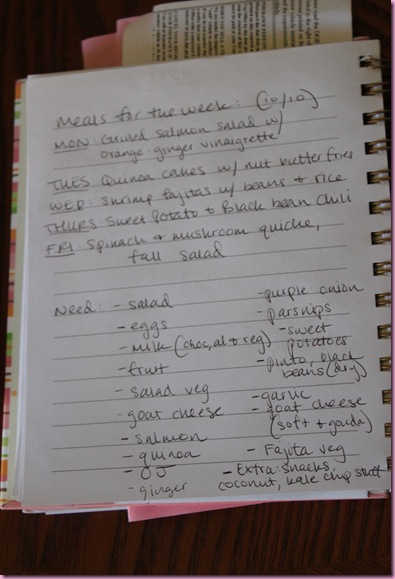 Meals for the week: (10/10)
MON: Grilled salmon salad w/
orange-ginger vinaigrette
TUES Quinoa cakes w/ nut butter fries
WED: Shrimp fajitas w/ beans + rice
THURS: Sweet Potato + Black bean chili
FRI: Spinach + mushroom quiche,
fall salad
Need: - salad
- eggs
- milk (choc, al + reg)
- fruit
- salad veg
- goat cheese
- salmon
- quinoa
- OJ
- ginger
- purple onion
- parsnips
- sweet
potatoes
- pinto, black
beans (dry)
- garlic
- goat cheese
(soft + gouda)
- Fajita veg
- Extra: snacks,
coconut, kale chip stuff